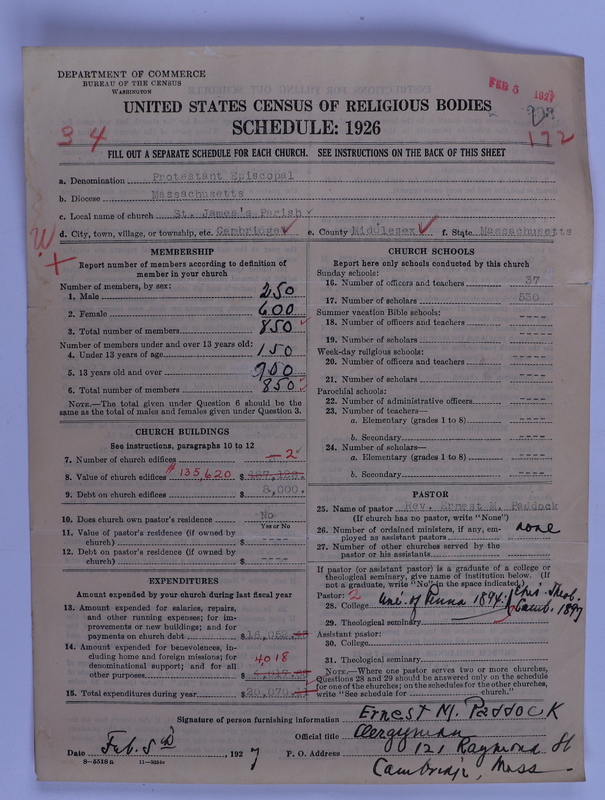 DEPARTMENT OF COMMERCE
BUREAU OF THE CENSUS
WASHINGTON
FEB 5 1927
UNITED STATES CENSUS OF RELIGIOUS BODIES
SCHEDULE: 1926
3 4
172
FILL OUT A SEPARATE SCHEDULE FOR EACH CHURCH. SEE INSTRUCTIONS ON THE BACK OF THIS SHEET
a. Denomination Protestant Episcopal
b. Diocese Massachusetts
c. Local name of church St. James's Parish
d. City, town, village, or township, etc. Cambridge e. County Middlesex f. State Massachusetts
MEMBERSHIP
Report number of members according to definition of
member in your church
Number of members, by sex:
1. Male 250
2. Female 600
3. Total number of members 850
Number of members under and over 13 years old:
4. Under 13 years of age 150
5. 13 years old and over 700
6. Total number of members 850
NOTE.—The total given under Question 6 should be
same as the total of males and females given under Question 3.
CHURCH BUILDINGS
See instructions, paragraphs 10 to 12
7. Number of church edifices 2
8. Value of church edifices # 135,620 $
9. Debt on church edifices $ 8,000.
10. Does church own pastor's residence No
Yes or No
11. Value of pastor's residence (if owned by
church) $ ----
12. Debt on pastor's residence (if owned by
church) $ ----
EXPENDITURES
Amount expended by your church during last fiscal year
13. Amount expended for salaries, repairs,
and other running expenses; for im-
provements or new buildings; and for
payments on church debt $16,052.
14. Amount expended for benevolences, in-
cluding home and foreign missions; for
denominational support; and for all
other purposes 4018 $
15. Total expenditures during year $20,070.
CHURCH SCHOOLS
Report here only schools conducted by this church
Sunday schools:
16. Number of officers and teachers 37
17. Number of scholars 530
Summer vacation Bible schools:
18. Number of officers and teachers ----
19. Number of scholars ----
Week-day religious schools:
20. Number of officers and teachers ----
21. Number of scholars ----
Parochial schools:
22. Number of administrative officers ----
23. Number of teachers—
a. Elementary (grades 1 to 8) ----
b. Secondary ----
24. Number of scholars—
a. Elementary (grades 1 to 8) ----
b. Secondary ----
PASTOR
25. Name of pastor Rev. Ernest M. Paddock
(If church has no pastor, write "None")
26. Number of ordained ministers, if any, em-
ployed as assistant pastors none
27. Number of other churches served by the
pastor or his assistants
If pastor (or assistant pastor) is a graduate of a college or
theological seminary, give name of institution below. (If
not a graduate, write "No" in the space indicated.)
Pastor: 2
28. College Uni. of Penna 1894. Epis. Theol.
29. Theological seminary Camb. 1897
Assistant pastor:
30. College
31. Theological seminary
NOTE.—Where one pastor serves two or more churches,
Questions 28 and 29 should be answered only on the schedule
for one of the churches; on the schedules for the other churches,
write "See schedule for church."
Signature of person furnishing information Ernest M. Paddock
Official title Clergyman
Date Feb. 5th, 1927 P. O. Address 121 Raymond St
Cambridge, Mass.
8—5518a